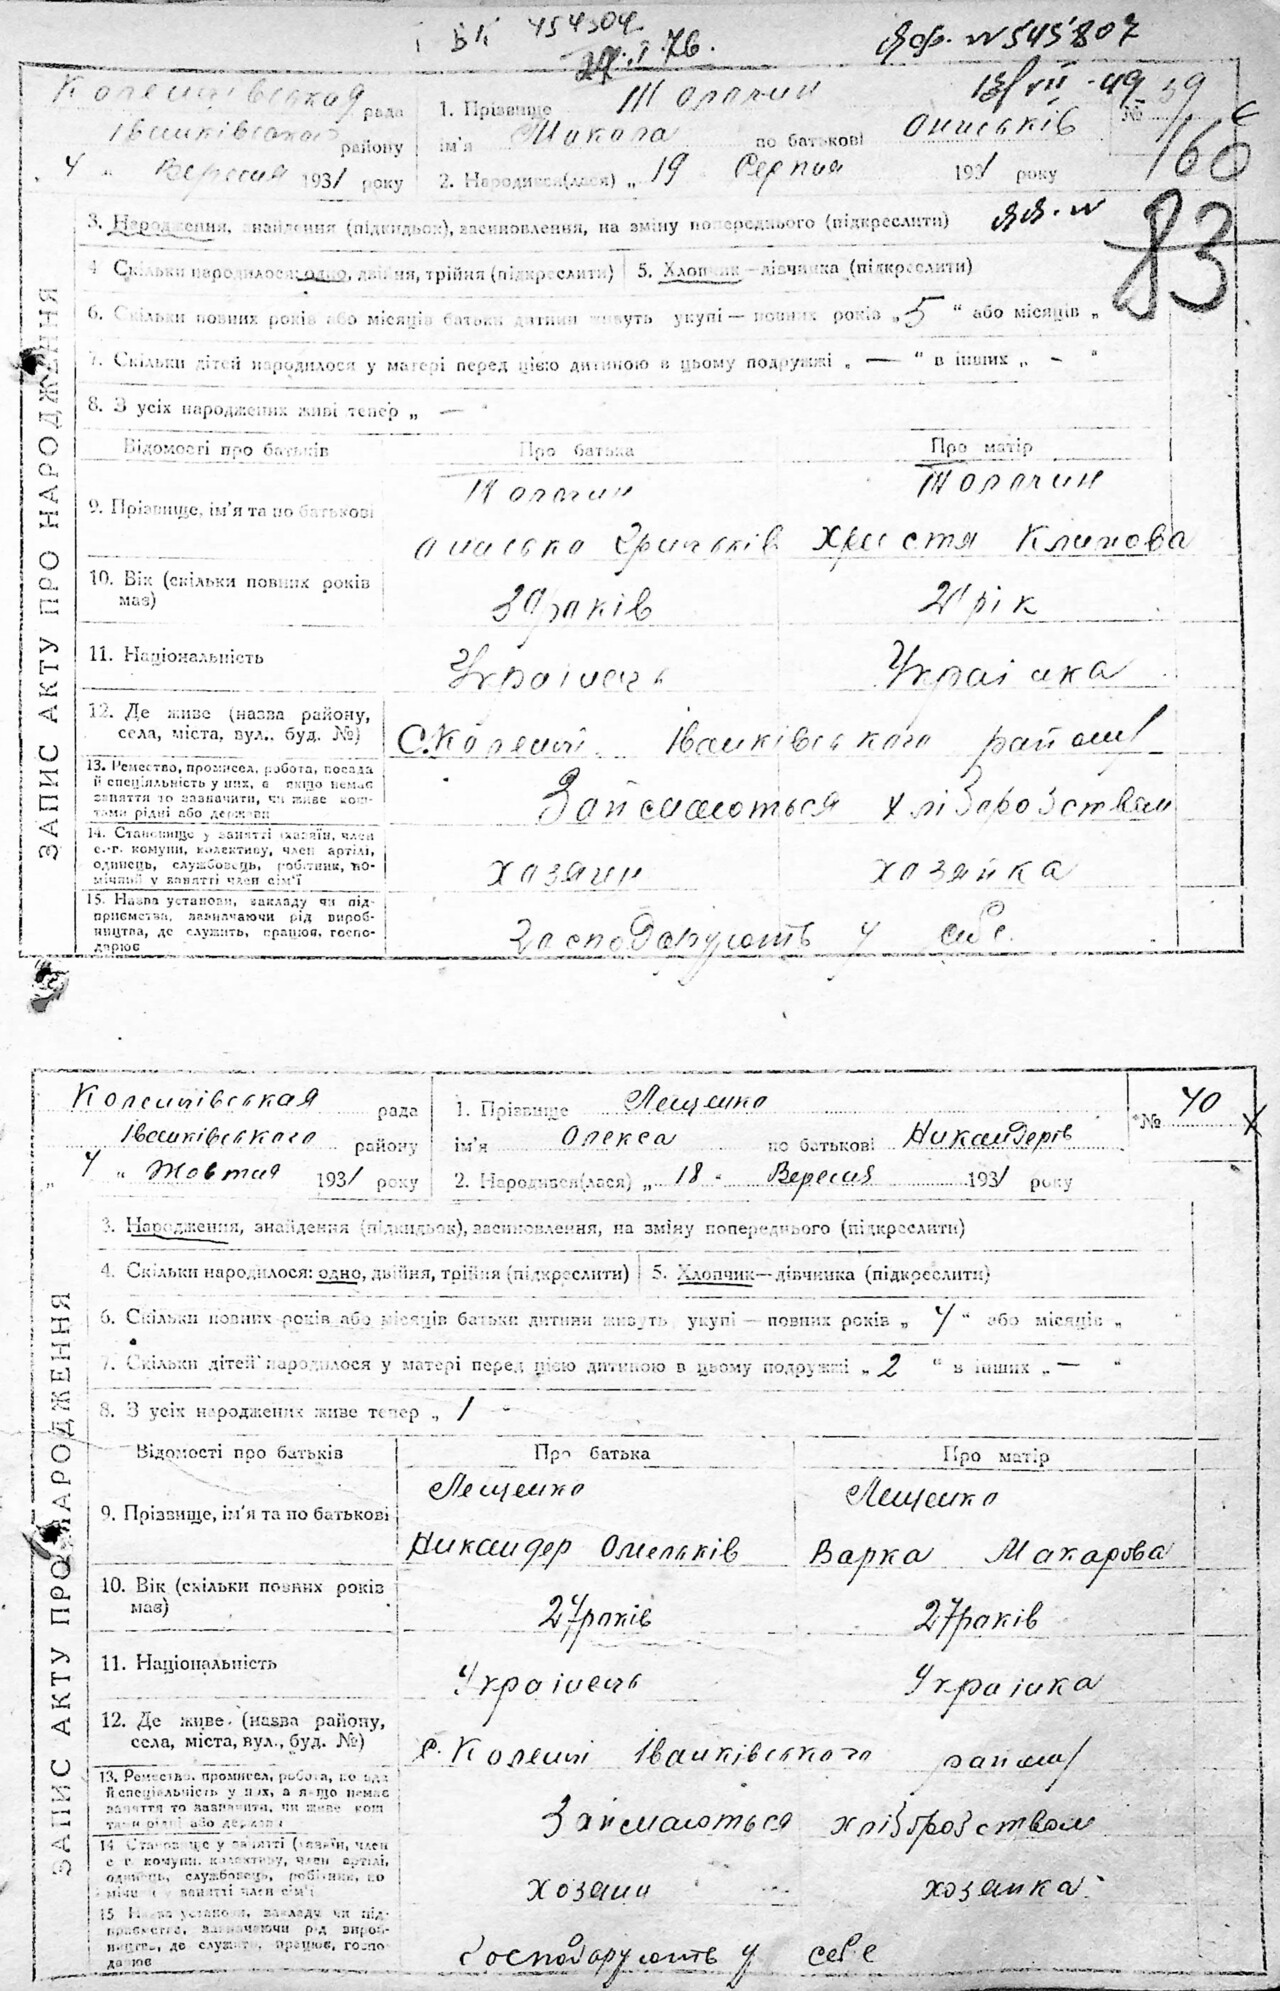 454304
27.I.76.
№ 545807
рада
1. Прізвище Толочин
39
Іванківського району
ім'я Микола по батькові Ониськів
№
160
„ 4 " Вересня 1931 року
2. Народився(лася) „ 19 Серпня 1931 року
3. Народження, знайдення (підкидьок), засиновлення, на зміну попереднього (підкреслити)
83
4. Скільки народилося: одно, двійня, трійня (підкреслити)
5. Хлопчик—дівчинка (підкреслити)
6. Скільки повних років або місяців батьки дитини живуть укупі — повних років „ 5 " або місяців „
7. Скільки дітей народилося у матері перед цією дитиною в цьому подружжі „ — " в інших „ - "
8. З усіх народжених живі тепер „ —
Відомості про батьків
Про батька
Про матір
9. Прізвище, ім'я та по батькові
Толочин
Толочин
Ониська Грицьків
Христя Климова
10. Вік (скільки повних років має)
років
21 рік
11. Національність
Українець
Українка
12. Де живе (назва району, села, міста, вул., буд. №)
Іванківського району
13. Ремество, промисел, робота, посада й спеціяльність у них, а якщо немає заняття то зазначити, чи живе коштами рідні або держави
Займаються хліборобством
14. Становище у занятті (хазяїн, член с.-г. комуни, колективу, член артілі, одинець, службовець, робітник, помічний у занятті член сім'ї
хозяин
хозяйка
15. Назва установи, закладу чи підприємства, зазначаючи рід виробництва, де служить, працює, господарює
Господарують у себе
ЗАПИС АКТУ ПРО НАРОДЖЕННЯ
рада
1. Прізвище Лещенко
№ 40
Іванківського району
ім'я Олекса по батькові Никандерів
„ 4 " Жовтня 1931 року
2. Народився(лася) „ 18 Вересня 1931 року
3. Народження, знайдення (підкидьок), засиновлення, на зміну попереднього (підкреслити)
4. Скільки народилося: одно, двійня, трійня (підкреслити)
5. Хлопчик—дівчинка (підкреслити)
6. Скільки повних років або місяців батьки дитини живуть укупі — повних років „ " або місяців „ "
7. Скільки дітей народилося у матері перед цією дитиною в цьому подружжі „ 2 " в інших „ — "
8. З усіх народжених живе тепер „ 1
Відомості про батьків
Про батька
Про матір
9. Прізвище, ім'я та по батькові
Лещенко
Лещенко
Никандер Омельків
Варка Макарова
10. Вік (скільки повних років має)
27 років
27 років
11. Національність
Українець
Українка
12. Де живе (назва району, села, міста, вул., буд. №)
Іванківського району
13. Ремество, промисел, робота, посада й спеціяльність у них, а якщо немає заняття то зазначити, чи живе коштами рідні або держави
Займаються хліборобством
14. Становище у занятті (хазяїн, член с.-г. комуни, колективу, член артілі, одинець, службовець, робітник, помічний у занятті член сім'ї
хозяин
хозяйка
15. Назва установи, закладу чи підприємства, зазначаючи рід виробництва, де служить, працює, господарює
Господарують у себе
ЗАПИС АКТУ ПРО НАРОДЖЕННЯ